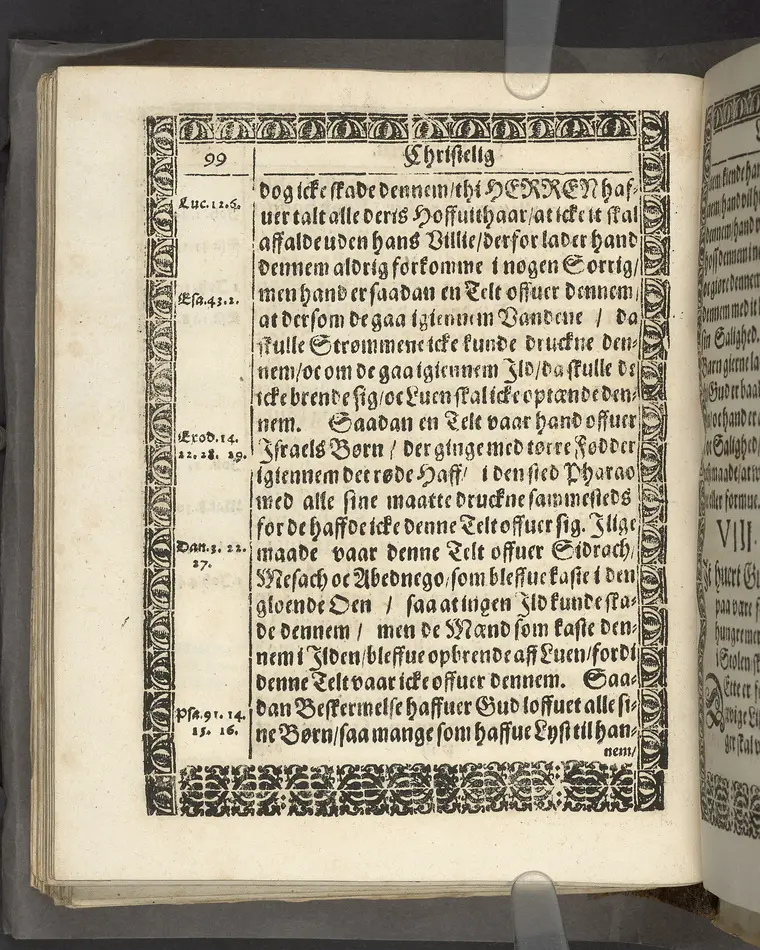 99
Christelig
dog icke skade dennem/thi HERREN haf-
Luc.12.6.
uer talt alle deris Hoffuithaar/at icke it skal
affalde uden hans Villie/derfor lader hand
dennem aldrig forkomme i nogen Sorrig/
Esa.43.2.
men hand er saadan en Telt offuer dennem/
at dersom de gaa igiennem Vandene / da
skulle Strømmene icke kunde druckne den-
nem/oc om de gaa igiennem Ild/da skulle de
icke brende sig/oc Luen skal icke optænde den-
nem. Saadan en Telt vaar hand offuer
Exod.14.
22.28.29.
Israels Børn / der ginge med tørre Fødder
igiennem det røde Haff/ i den sted Pharao
med alle sine maatte druckne sammesteds
for de haffde icke denne Telt offuer sig. Ilige
Dan.3.22.
27.
maade vaar denne Telt offuer Sidrach/
Mesach oc Abednego/som bleffue kaste i den
gloende Oen / saa at ingen Ild kunde ska-
de dennem / men de Mænd som kaste den-
nem i Ilden/bleffue opbrende aff Luen/fordi
denne Telt vaar icke offuer dennem. Saa-
Psa.91.14.
15. 16.
dan Beskermelse haffuer Gud loffuet alle si-
ne Børn/saa mange som haffue Lyst til han-
nem/
VIII.